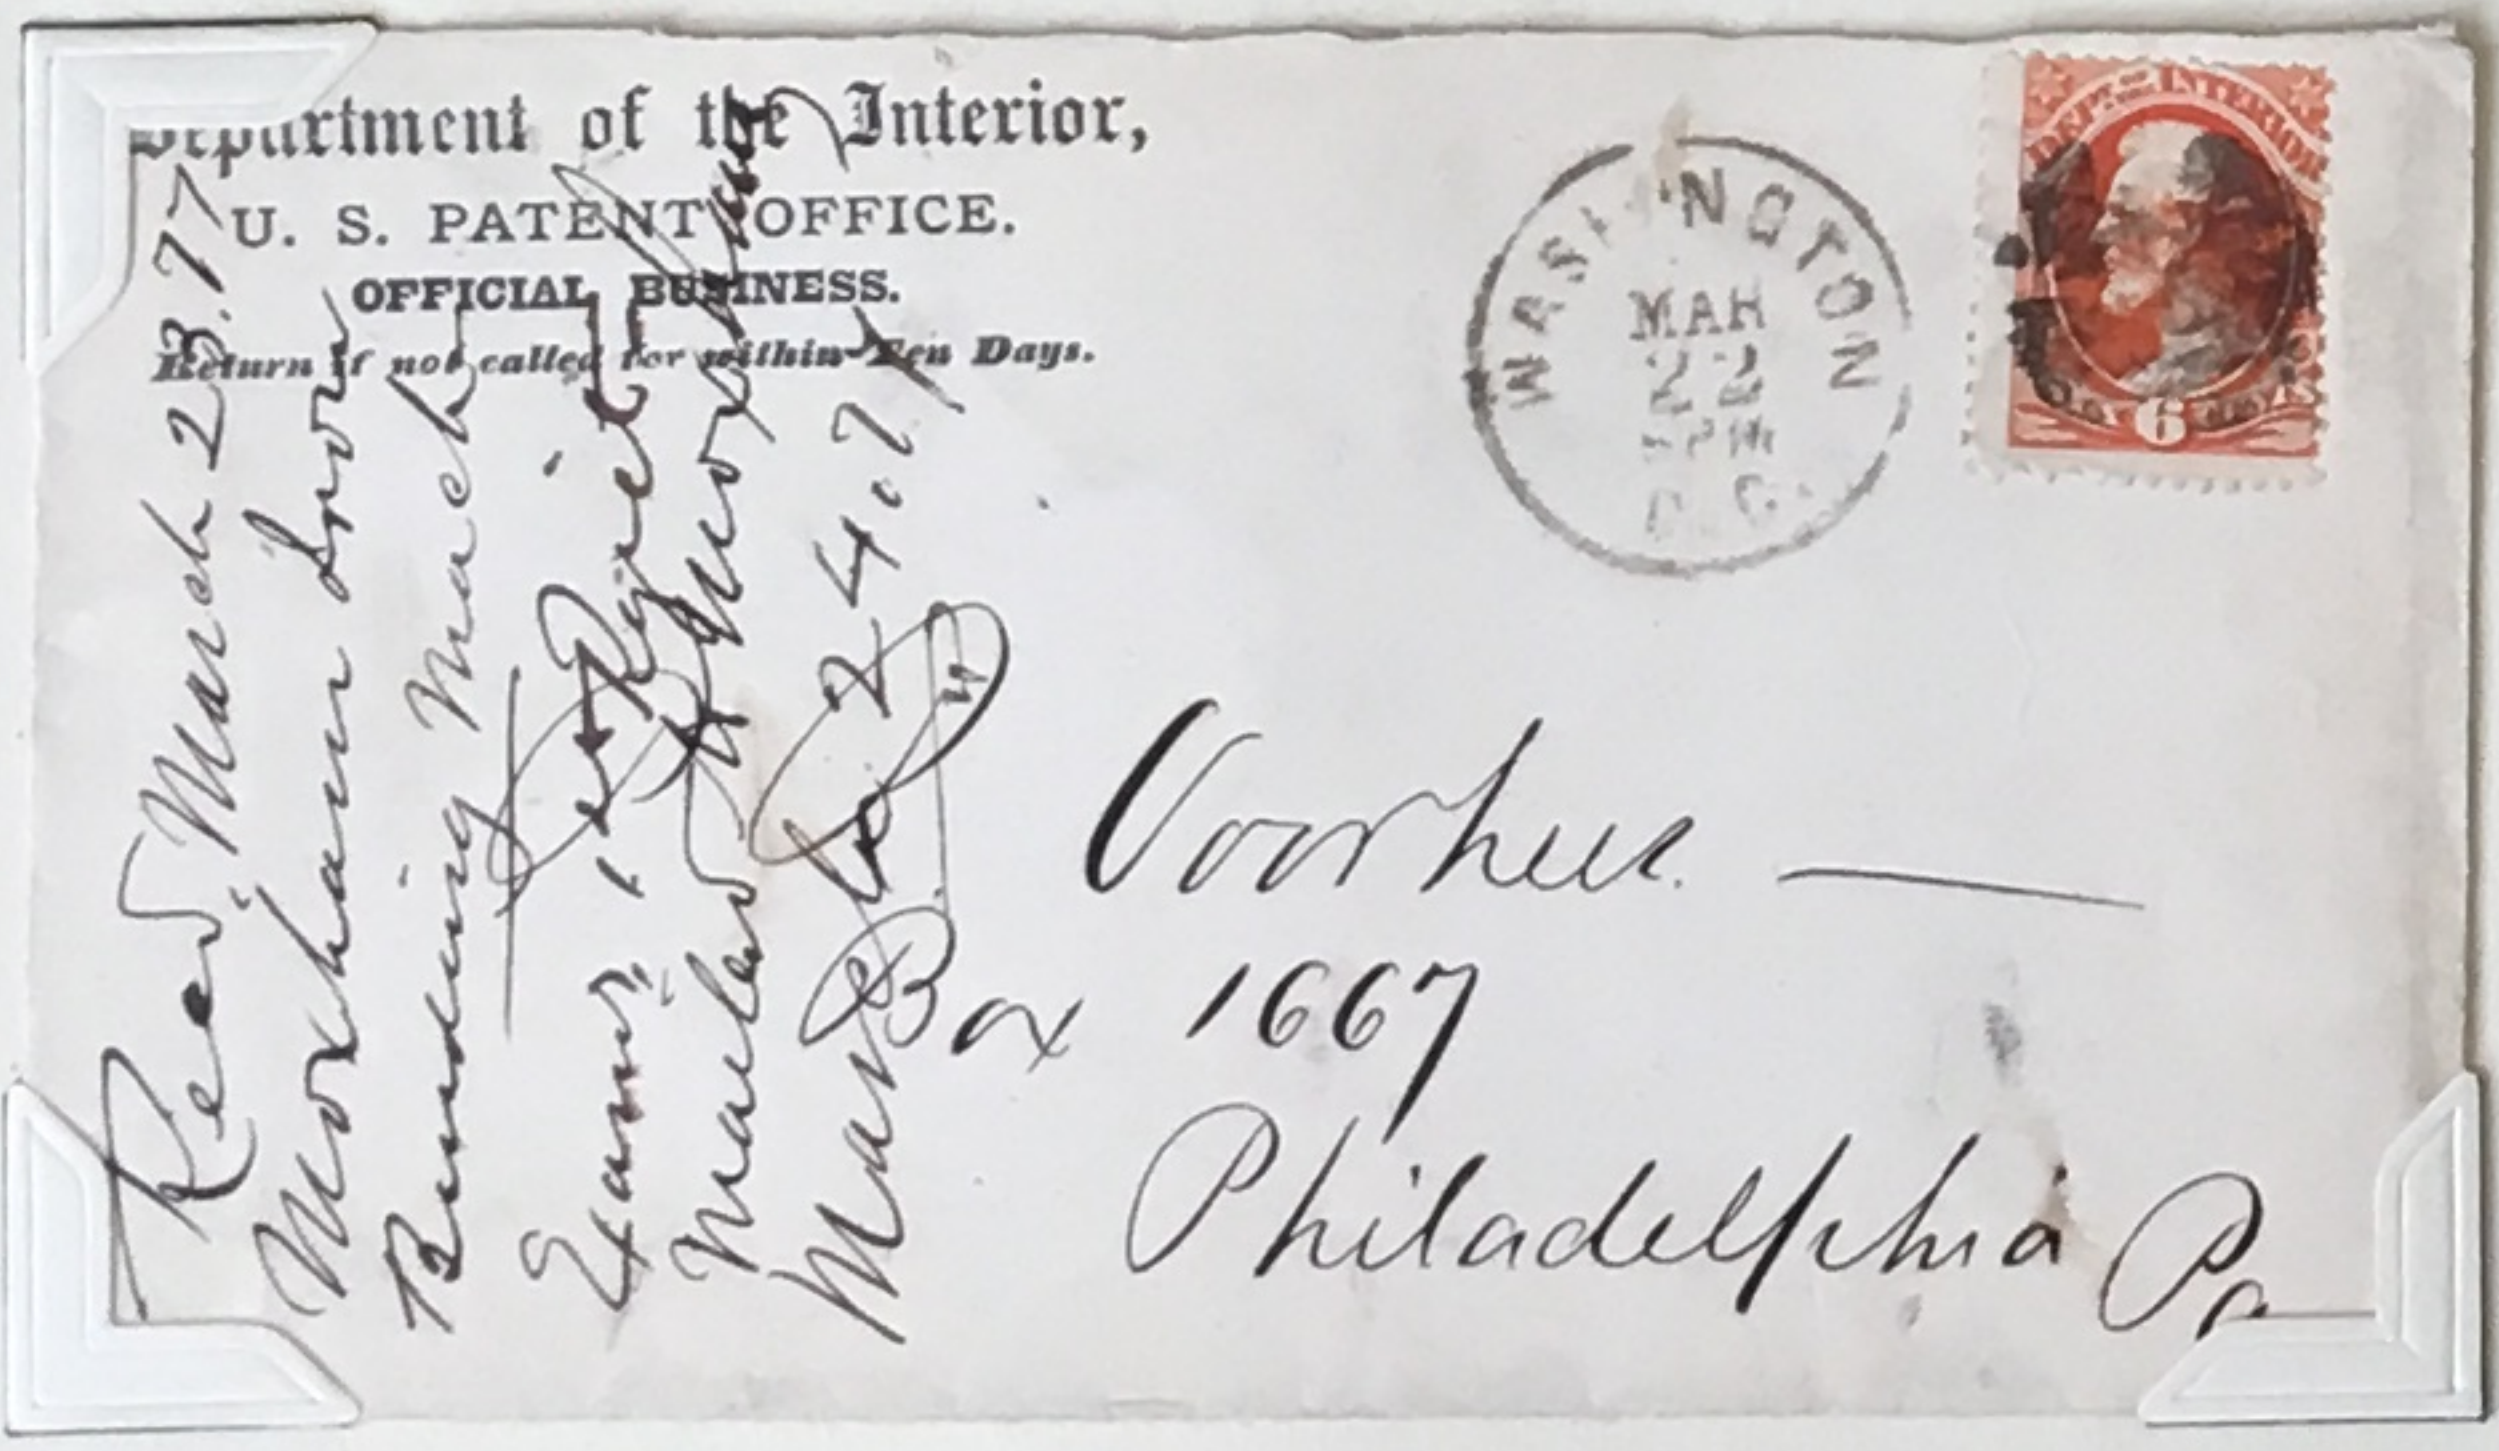 Department of the Interior,
U. S. PATENT OFFICE.
OFFICIAL BUSINESS.
Return if not called for within Ten Days.
WASHINGTON
MAR
22
PM
D. C.
DEPT. OF THE INTERIOR
6
Voorhees
Box 1667
Philadelphia Pa
Recd March 23.77
Moxham Iron
Bending Mach
Exam
Mailed Moxham
March 24.77